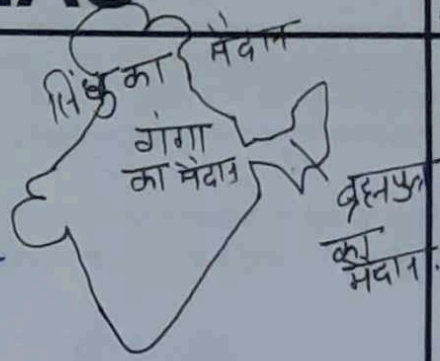 सिंधु का मैदान
गंगा
का मैदान
ब्रह्मपुत्र
का
मैदान.